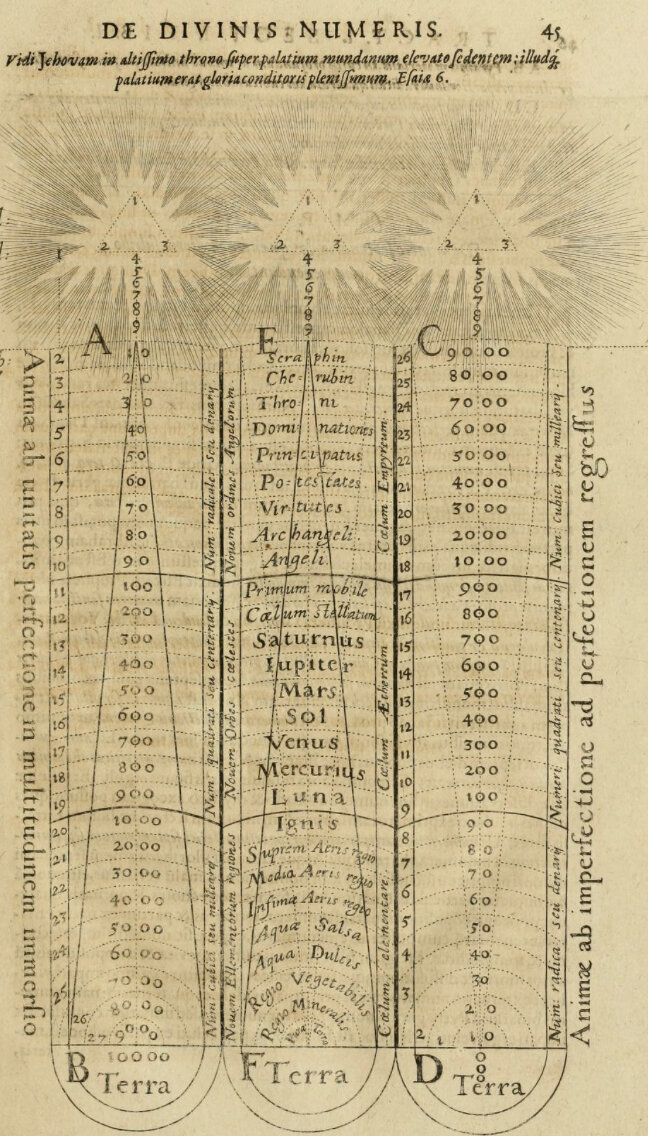 DE DIVINIS NUMERIS. 45
Vidi Jehovam in altissimo throno super palatium mundanum elevato sedentem; illudq́;
palatium erat gloria conditoris plenissimum. Esaiæ 6.
1
2 3
1
4
5
6
7
8
9
1
2 3
4
5
6
7
8
9
1
2 3
4
5
6
7
8
9
Animæ ab unitatis perfectione in multitudinem immersio
A
2 10
3 20
4 30
5 40
6 50
7 60
8 70
9 80
10 90
11 100
12 200
13 300
14 400
15 500
16 600
17 700
18 800
19 900
20 1000
21 2000
22 3000
23 4000
24 5000
6000
25 7000
26 8000
27 9000
10000
B Terra
Num radicales seu denarij
Num quadrati seu centenarij
Num cubici seu millearij
Novem ordines Angelorum
Novem Orbes cœlestes
Novem Ellementorum regiones
E
Seraphin
Cherubin
Throni
Dominationes
Principatus
Potestates
Virtutes
Archangeli
Angeli
Primum mobile
Cœlum stellatum
Saturnus
Iupiter
Mars
Sol
Venus
Mercurius
Luna
Ignis
Suprem Aeris regio
Media Aeris regio
Infima Aeris regio
Aqua Salsa
Aqua Dulcis
Regio Vegetabilis
Regio Mineralis
Terra
F Terra
Cœlum Empyreum
Cœlum Æthereum
Cœlum elementare
C
26 9000
25 8000
24 7000
23 6000
22 5000
21 4000
20 3000
19 2000
18 1000
17 900
16 800
15 700
14 600
13 500
12 400
11 300
10 200
9 100
8 90
7 80
6 70
5 60
4 50
40
3 30
20
2 1 10
0
0
8
D Terra
Num: cubici seu millearij
Numeri quadrati seu centenarij
Num radica: seu denarij
Animæ ab imperfectione ad perfectionem regressus